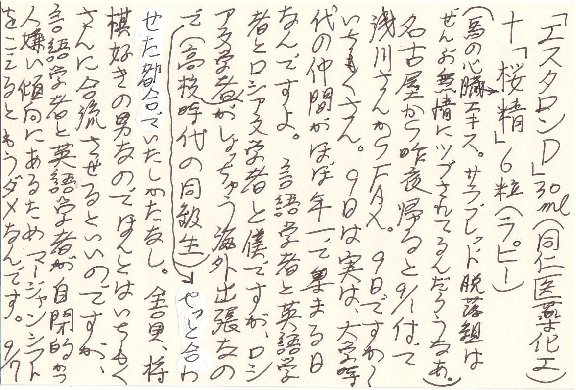 「エスタロンD」30ml(同仁医薬化工)
+「桜精」6粒(ラピー)
(馬の心臓エキス。サラブレッド脱落組は
ぜんぶ無情にツブされてるんだろうなあ。)
名古屋から昨夜帰ると9/1付で
浅川さんからFAX。9日ですか〜
いちもくさん。9日は実は、大学時
代の仲間がほぼ年一で集まる日
なんですよ。 言語学者と英語学
者とロシア文学者と僕ですが、ロシ
ア文学者がしょっちゅう海外出張なの
で(高校時代の同級生)やっと合わ
せた都合でいたしかたなし。全員、将
棋好きの男なのでほんとはいちもく
さんに合流させるといいのですが、
言語学者と英語学者が自閉的かつ
人嫌い傾向にあるためマージャンシフト
をこえるともうダメなんです。9/7